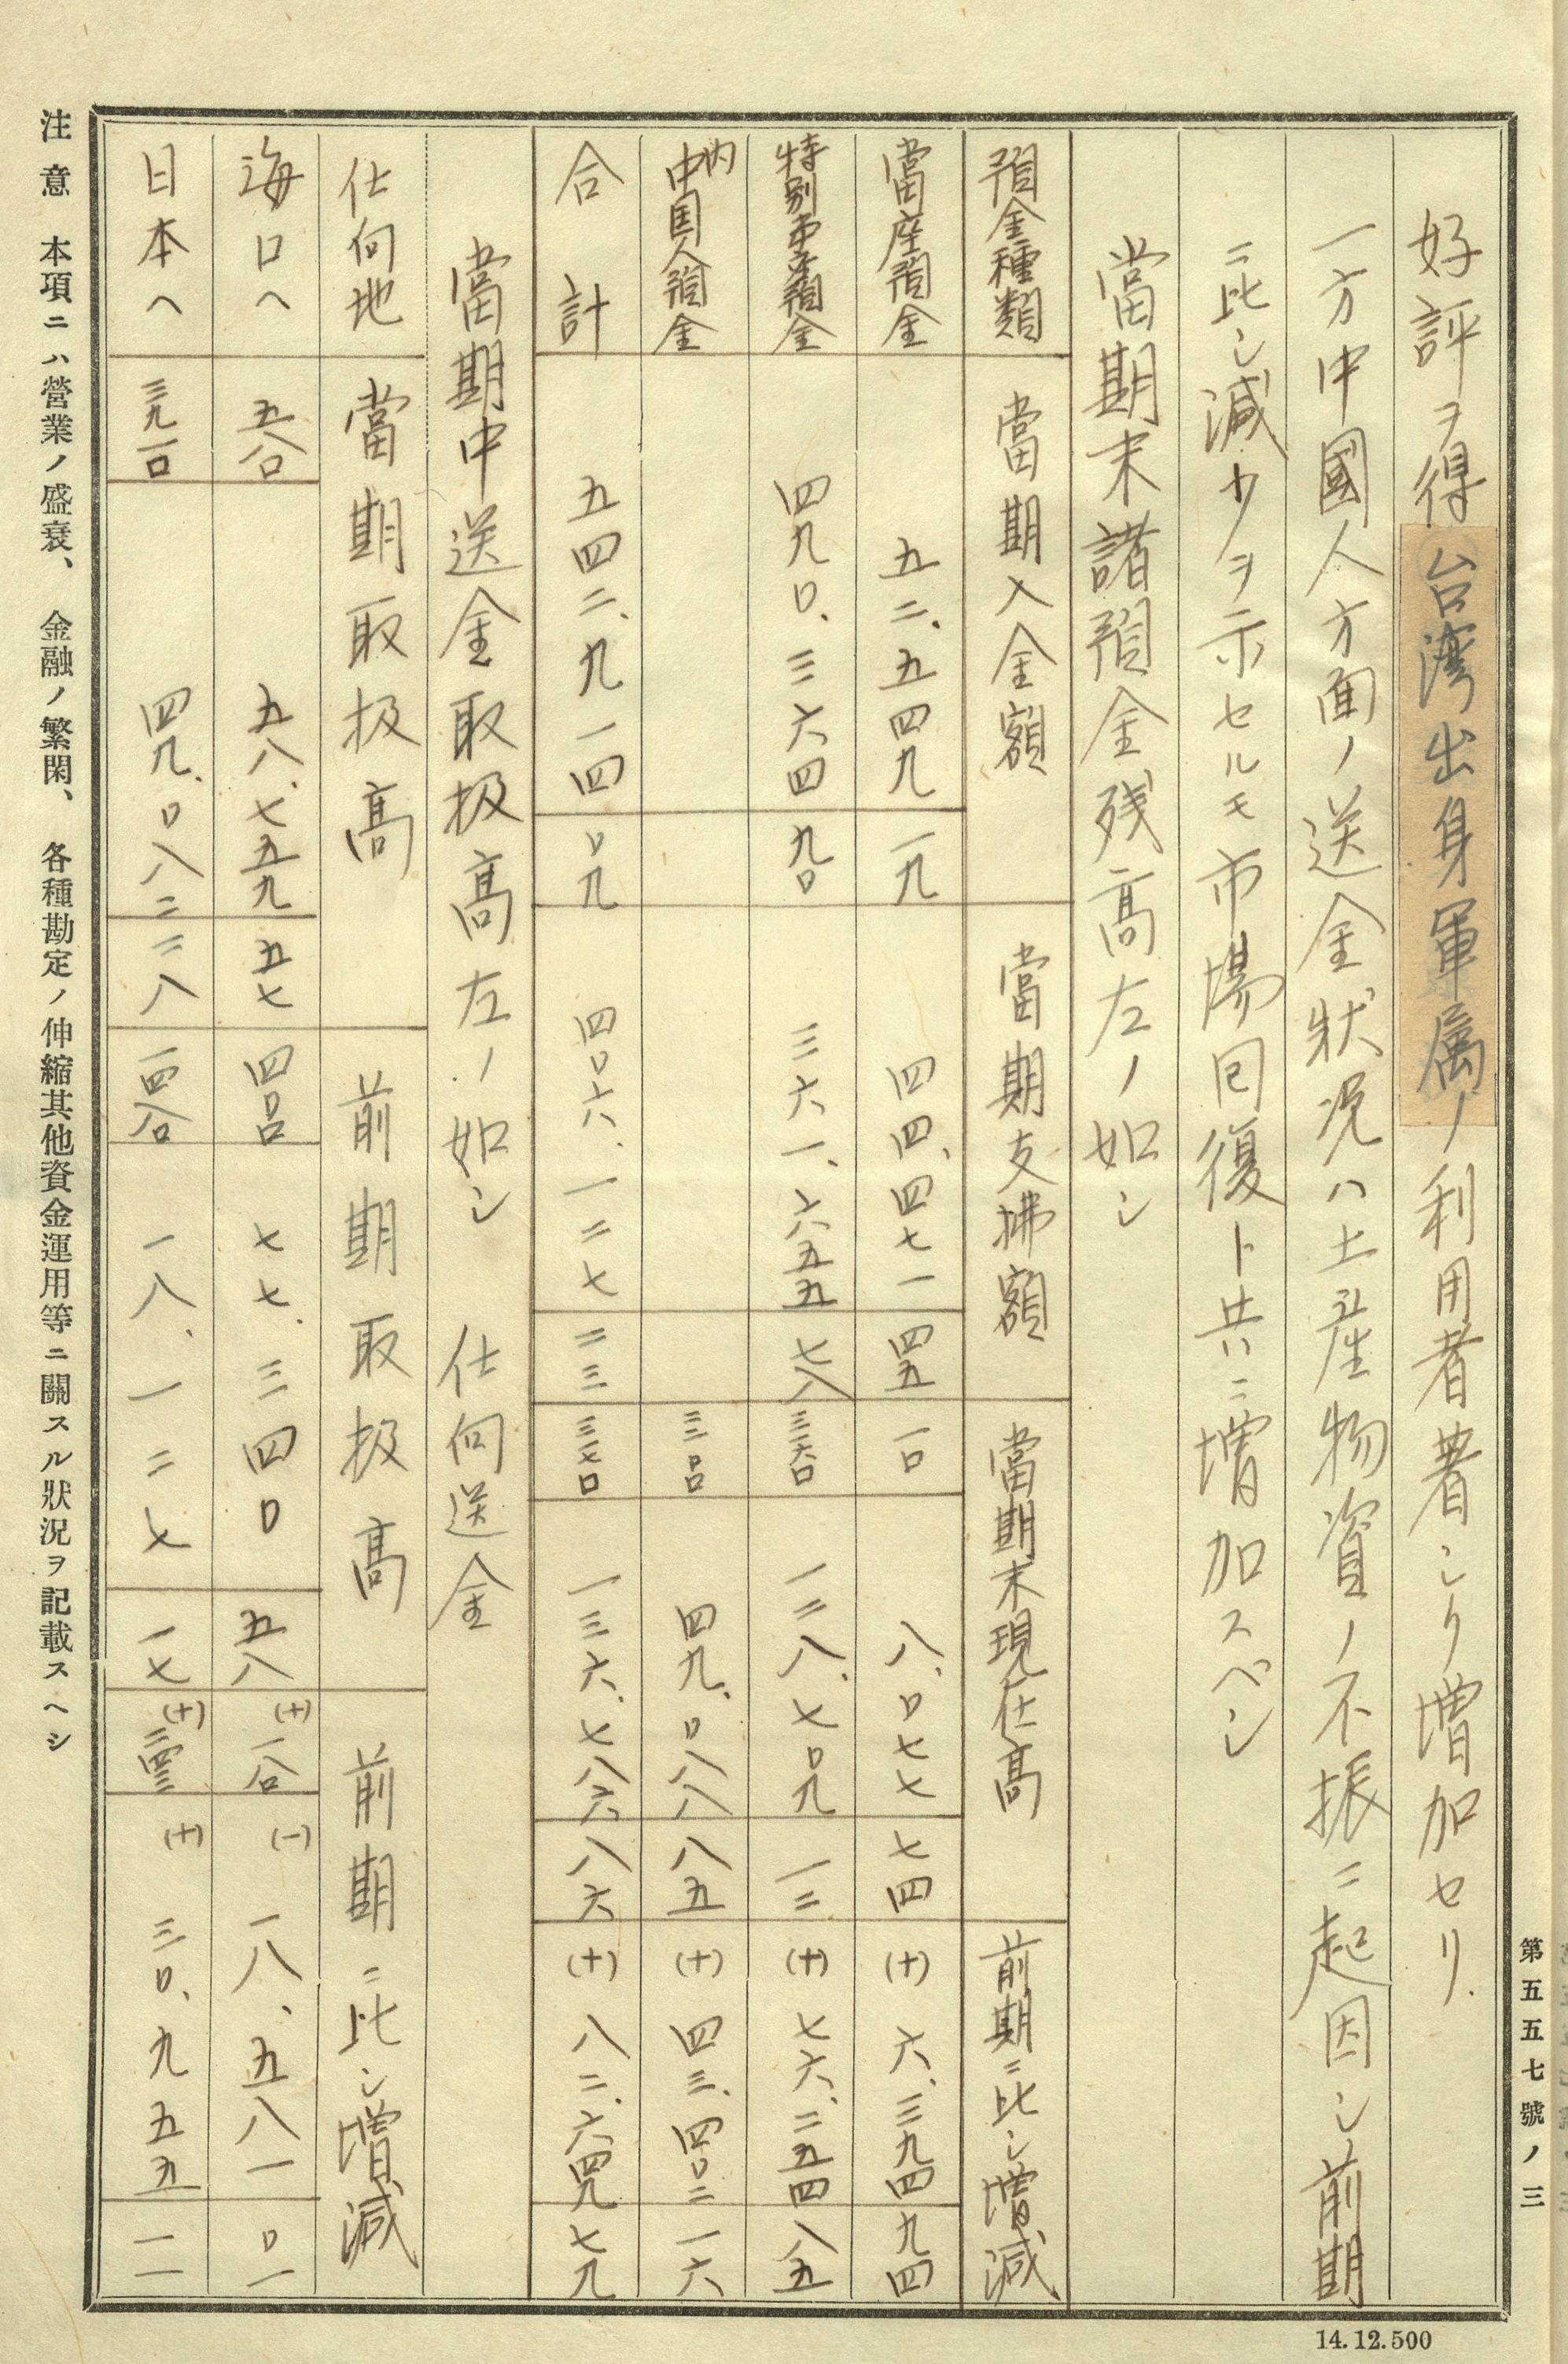 第五五七號ノ三
好評ヲ得台湾出身軍属ノ利用者著シク増加セリ.
一方中國人方面ノ送金狀况ハ土産物資ノ不振ニ起因シ前期
ニ比シ減少ヲ示セルモ市場回復ト共ニ増加スベシ
當期末諸預金残高左ノ如シ
預金種類 當期入金額 當期支拂額 當期末現在高 前期ニ比シ增減
當座預金 五二、五四九 一九 四四、四七一 四五 一口 八、〇七七 七四 (+) 六、三九四 九四
特別当座預金 四九〇、三六四 九〇 三六一、六五五 七八 三一六口 一二八、七〇九 一二 (+) 七六、二五四 八五
内中国人預金 三〇〇口 四九、〇八八 八五 (+) 四三、四〇二 一六
合計 五四二、九一四 〇九 四〇六、一二七 二三 三一七口 一三六、七八六 八六 (+) 八二、六四九 七九
當期中送金取扱高左ノ如シ 仕向送金
仕向地 當期取扱高 前期取扱高 前期ニ比シ增減
海口ヘ 五八口 五八、七五九 五七 四〇口 七七、三四〇 五八 (+) 一八口 (-) 一八、五八一 〇一
日本ヘ 三九一口 四九、〇八二 二八 一四八口 一八、一二七 一七 (+) 二四三 (+) 三〇、九五五 一一
注意 本項ニハ營業ノ盛衰、金融ノ繁閑、各種勘定ノ伸縮其他資金運用等ニ關スル狀況ヲ記載スヘシ
14.12.500